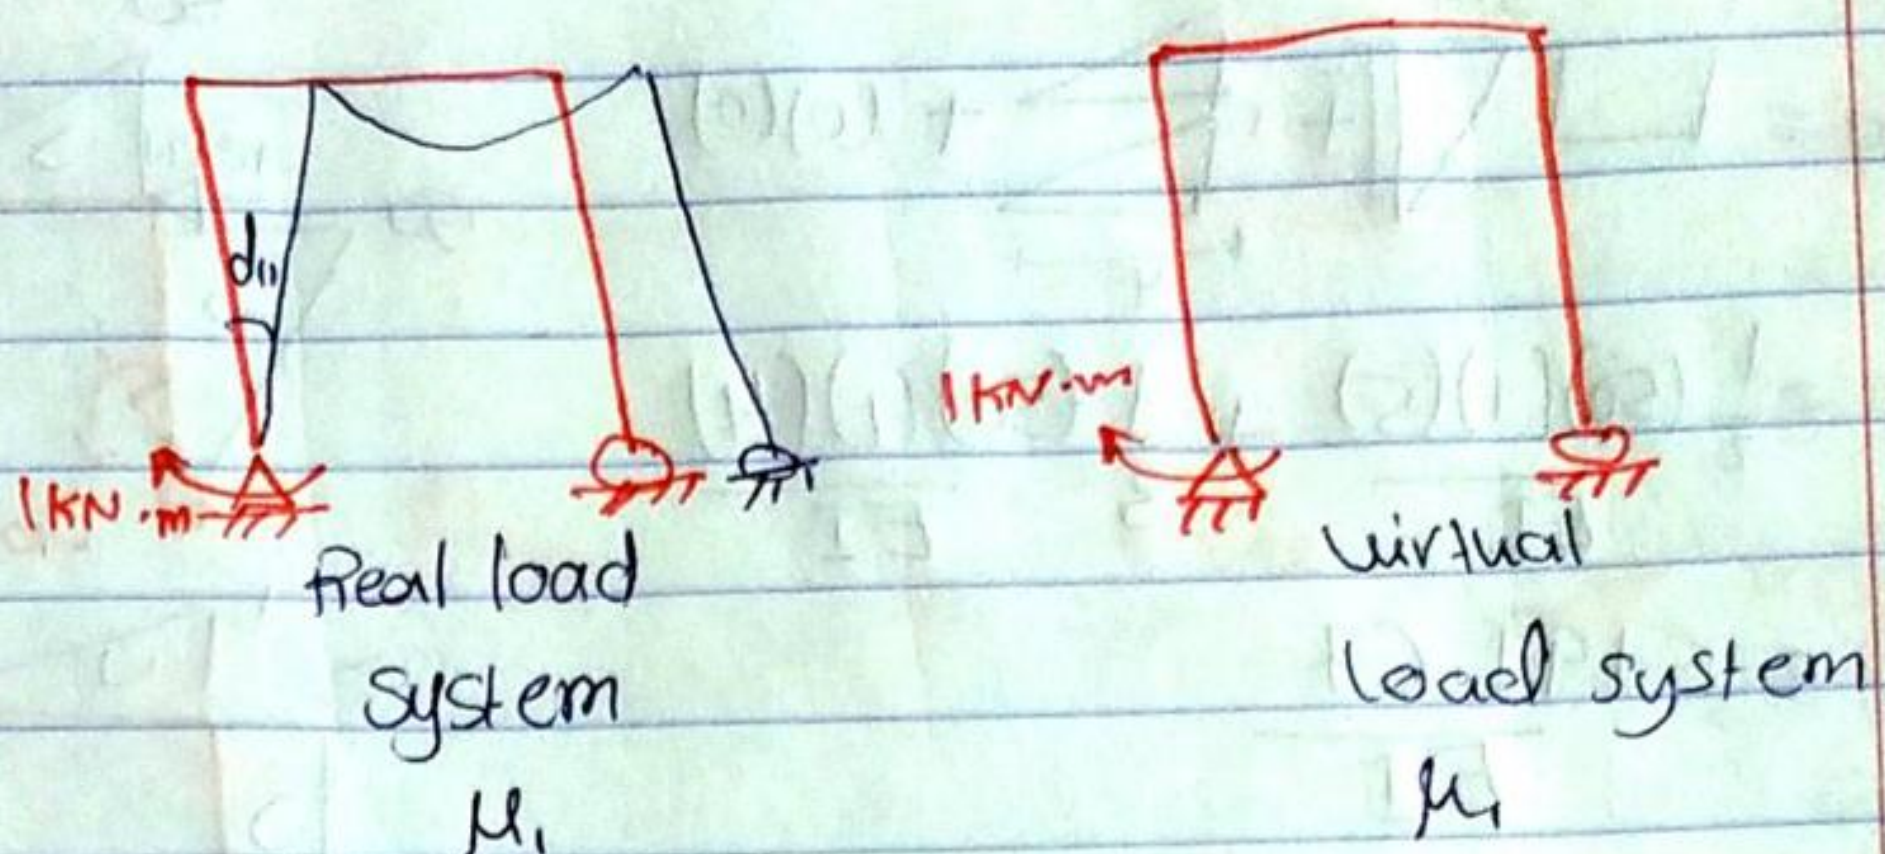 d₁₁
1KN.m
1KN.m
Real load
system
μ₁
virtual
load system
μ₁